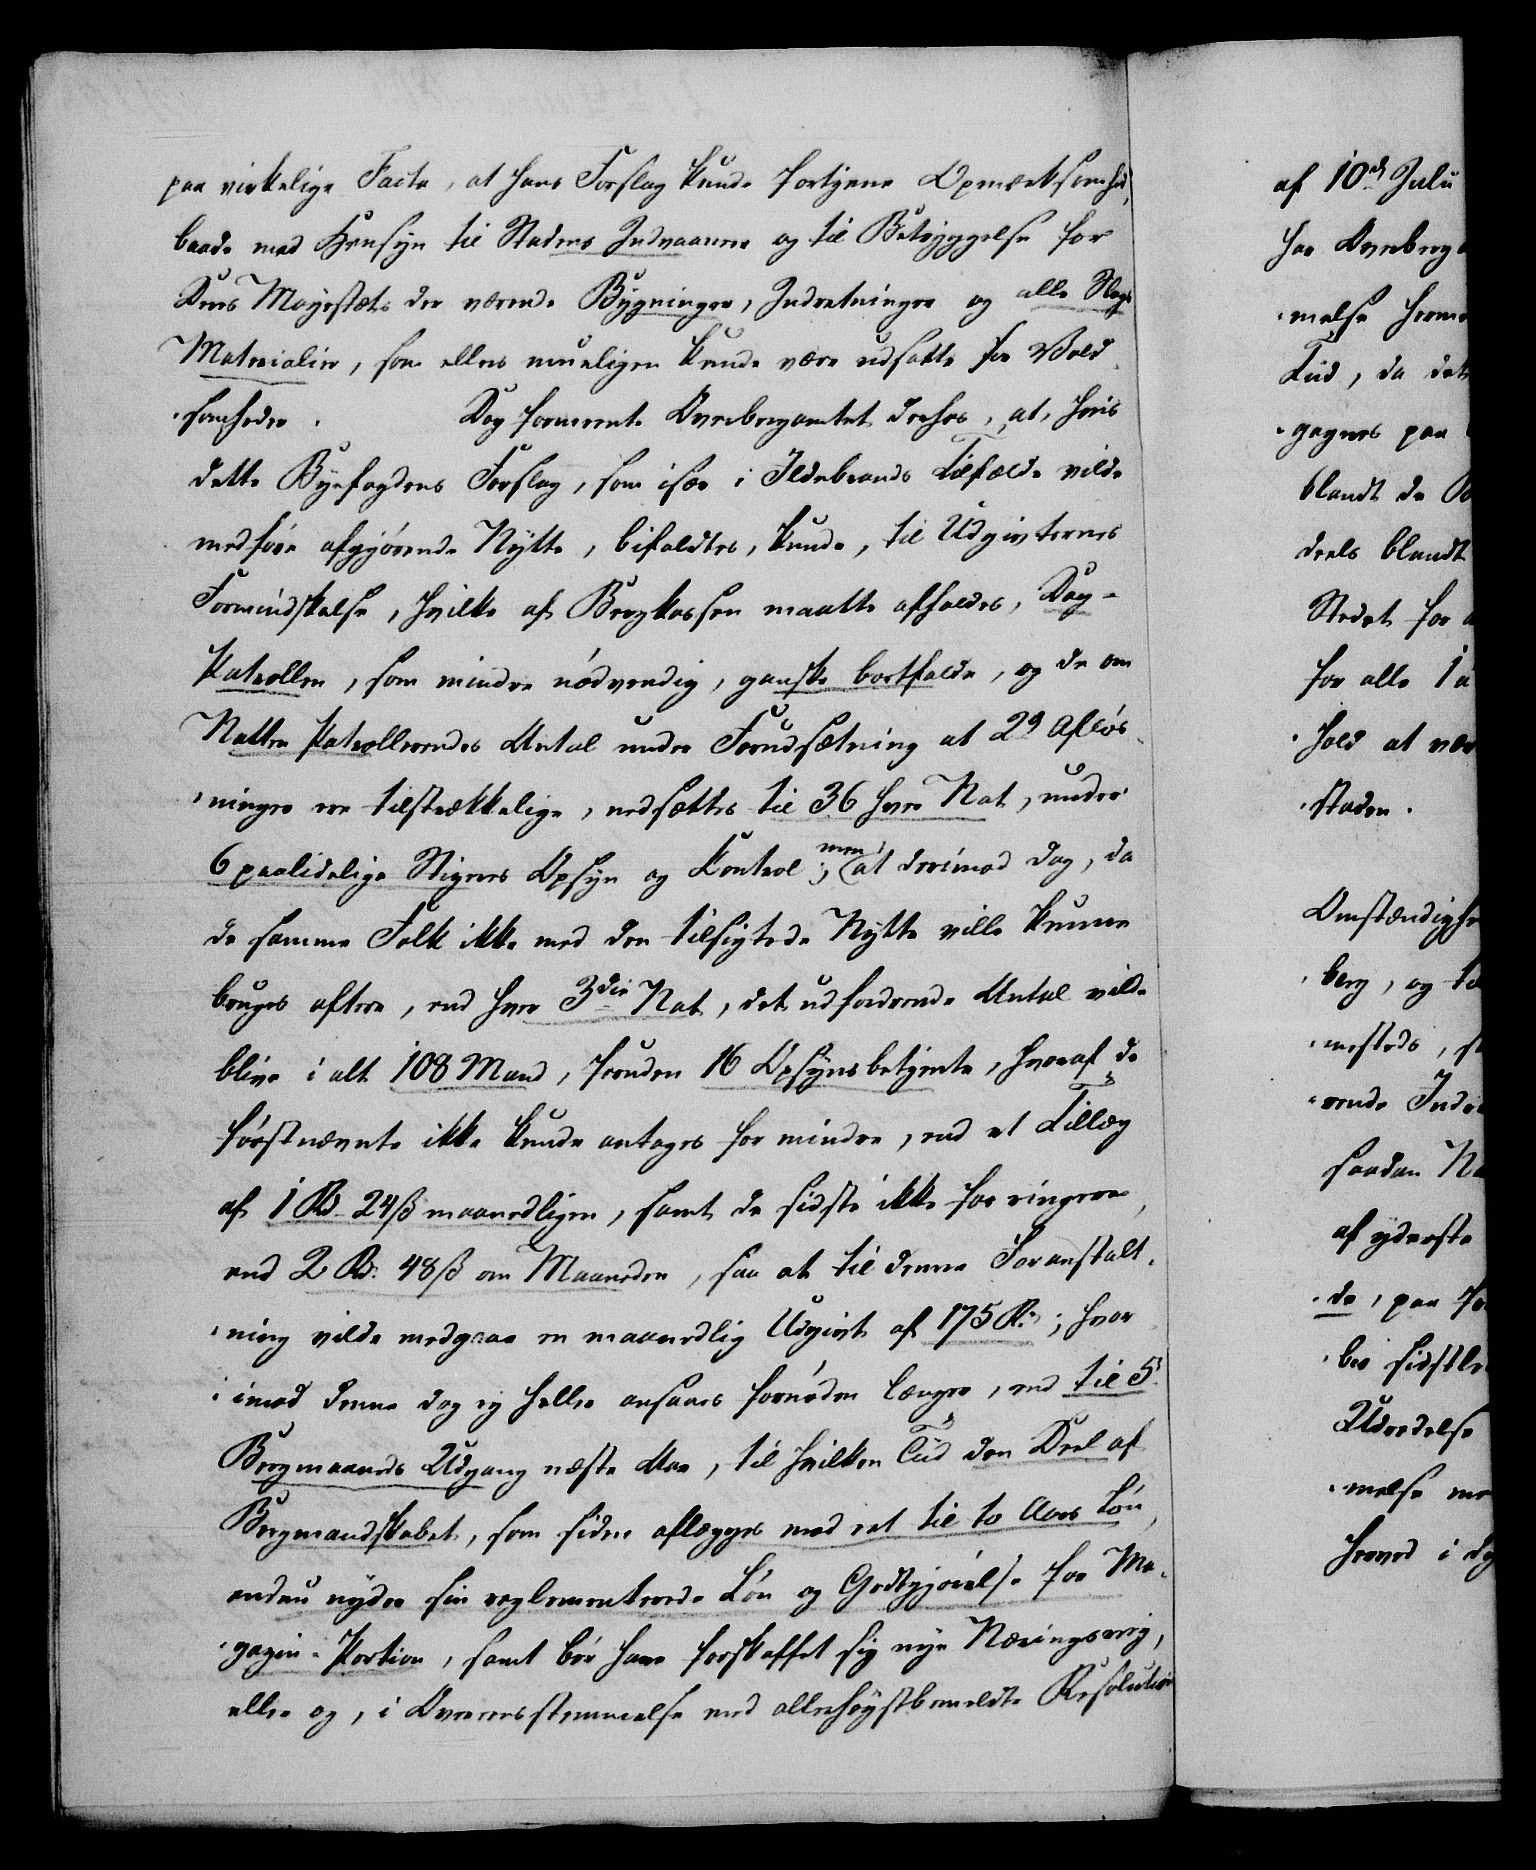 paa virkelige Facta, at hans Forslag kunde fortjene Opmærksomhed,
baade med Hensyn til Stadens Indvaanere og til Betryggelse for
Deres Mayestæts der værende Bygninger, Indretninger og alle Slags
Materialier, som ellers mueligen kunde være udsatte for Vold-
somheder. Dog formeente Overbergamtet derhos, at, hvis
dette Byefogdens Forslag, som især i Ildebrands Tilfælde vilde
medføre afgjørende Nytte, bifaldtes, kunde, til Udgivternes
Formindskelse, hvilke af Bergkassen maatte afholdes, Dag-
Patrollen, som mindre nødvendig, ganske bortfalde, og de om
Natten Patrollerendes Antal under Forudsætning at 2de Afløs-
ninger ere tilstrækkelige, nedsættes til 36 hver Nat, under
6 paalidelige Stigeres Opsyn og Kontrol; men at derimod dog, da
de samme Folk ikke med den tilsigtede Nytte ville kunne
bruges oftere, end hver 3die Nat, det udfordrende Antal vilde
blive i alt 108 Mand, foruden 16 Opsynsbetjente, hvoraf de
førstnævnte ikke kunde antages for mindre, end et Tillæg
af 1 Rd 24 ß maanedligen, samt de sidste ikke for ringere,
end 2 Rd: 48 ß om Maaneden, saa at til denne Foranstalt-
ning vilde medgaae en maanedlig Udgivt af 175 Rd; hvor
imod denne dog ej heller ansaaes fornøden længere, end til 5
Bergmaaneds Udgang næste Aar, til hvilken Tiid den Deel af
Bergmandskabet, som siden aflægges med eet til to Aars Løn,
endnu nyder sin reglementerede Løn og Godtgjørelse for Ma-
gazin-Portion, samt bør have forskaffet sig nye Næringsvej,
eller og, i Overeensstemmelse med allerhøystbemeldte Resolution
af 10de Julii
har Overberga
melse herme
Tiid, da det
gagnes paa
blandt de B
deels blandt
Stedet for
for alle
hold at vær
staden.
Omstændighe
berg, og
mesteds,
rende Indr
saadan N
af yderste
de, paa
ber sidstl
Udredelse
melse me
herved i